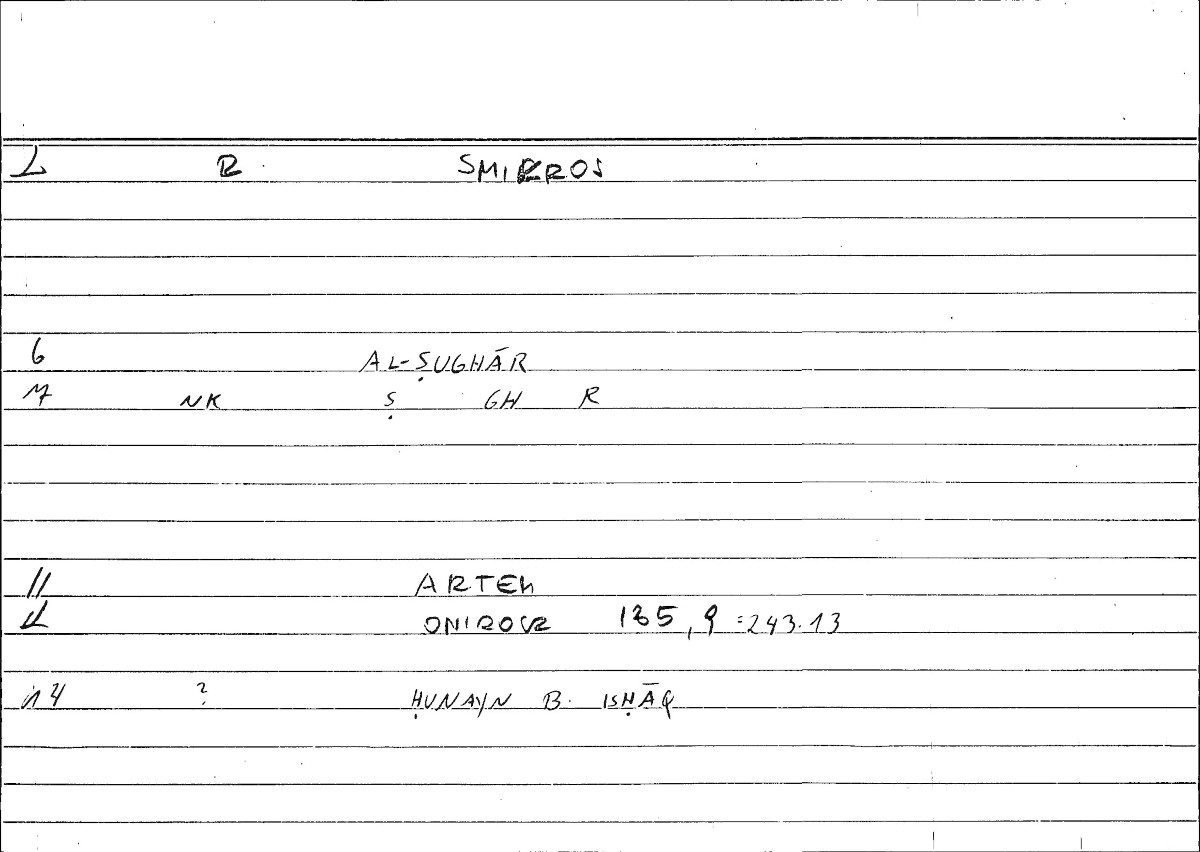 1 R. SMIKROS
6 AL-ṢUGHĀR
7 NK Ṣ GH R
11 ARTEM
12 ONIROCR 135,9 =243.13
14 ? ḤUNAYN B. ISḤĀQ